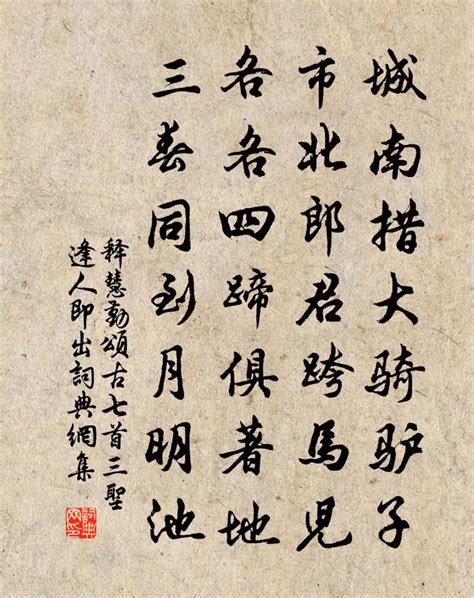 城南措大骑驴子
市北郎君跨馬児
各各四蹄俱著地
三春同到月明池
释慧勤頌古七首三聖
逢人即出詞典網集